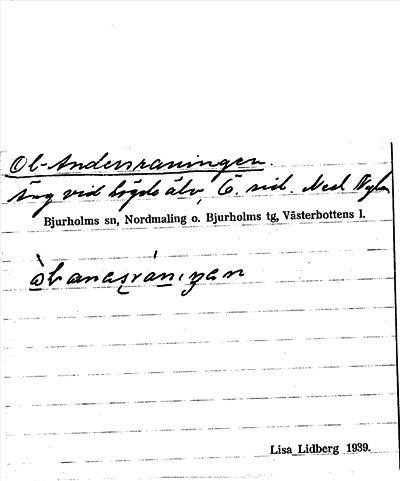 Ol-Andersraningen.
Äng vid Lögde älv, Ö. sid. Ned
Bjurholms sn, Nordmaling o. Bjurholms tg, Västerbottens l.
Lisa Lidberg 1939.